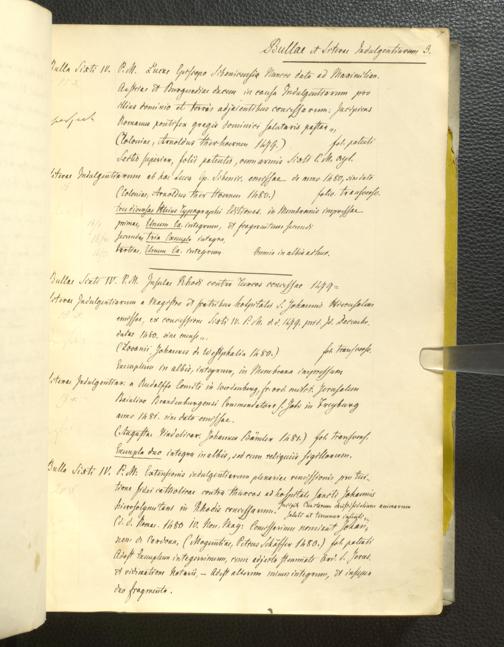 Bullae et Literae Indulgentiarum 3.
Bulla Sixti IV. P.M. Lucae Episcopo Sibenicensi Nuncio data ad Maximilian.
Austriae et Burgundiae ducem in causa Indulgentiarum pro
illius dominio et terris adjacentibus concessarum; Incipiens
Romanus pontifex gregis dominici salutaris pastor
(Coloniae, Arnoldus therhoernen 1479.) fol. patuli
folii patentis, cum armis Sixti P.M.
Literae Indulgentiarum ab hoc Luca Ep. Sibenic. emissae de anno 1480, sine dato
(Coloniae, Arnoldus ther Hoernen 1480.) folio transverso.
tres diversae Huius Typographi Editiones, in Membranis impressae
primae, Unum Ex. integrum, et fragmentum secundi
secundae tria Exempla integra
tertiae, Unum Ex. integrum Omnia in albis adhuc.
Bullae Sixti IV. P.M. Insulae Rhodi contra Turcas concessae 1479
Literae Indulgentiarum a Magistro et fratribus hospitalis S. Johannis
emissae, ex concessione Sixti IV. P.M. d.d. 1479. prid. Id. Decemb.
datae 1480. sine mense
(Lovanii Johannes de Westphalia 1480.) fol. transverso.
Exemplum in albis, integrum, in Membrana impressum
Literae Indulgentiar. a Rudolfo Comite in Werdenberg,
Brandenburgensi Commendatore, S. Joh. in Freyburg
anno 1481. sine dato emissae.
(Augustae Vindelicor. Johannes Bämler 1481.) fol. transvers.
Exempla duo integra in albis, sed cum reliquiis sigillorum.
Bulla Sixti IV. P.M. Extensionis indulgentiarum plenariae remissionis pro
fidei catholicae contra Turcas ad hospitale Sancti Johannis
hierosolymitani in Rhodis concessarum.
1480 IV. Non. Maji: Commissarium nominat Johan-
nem de Cardona, (Moguntiae, Petrus Schöffer 1480.) fol. patuli
Adest Exemplum integerrimum, cum adjecto
et vidimatione Notarii, – Adest alterum minus integrum, et insuper
duo fragmenta.